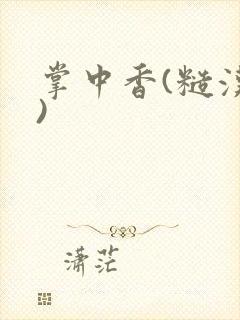 掌中香(糙
)
潇茫